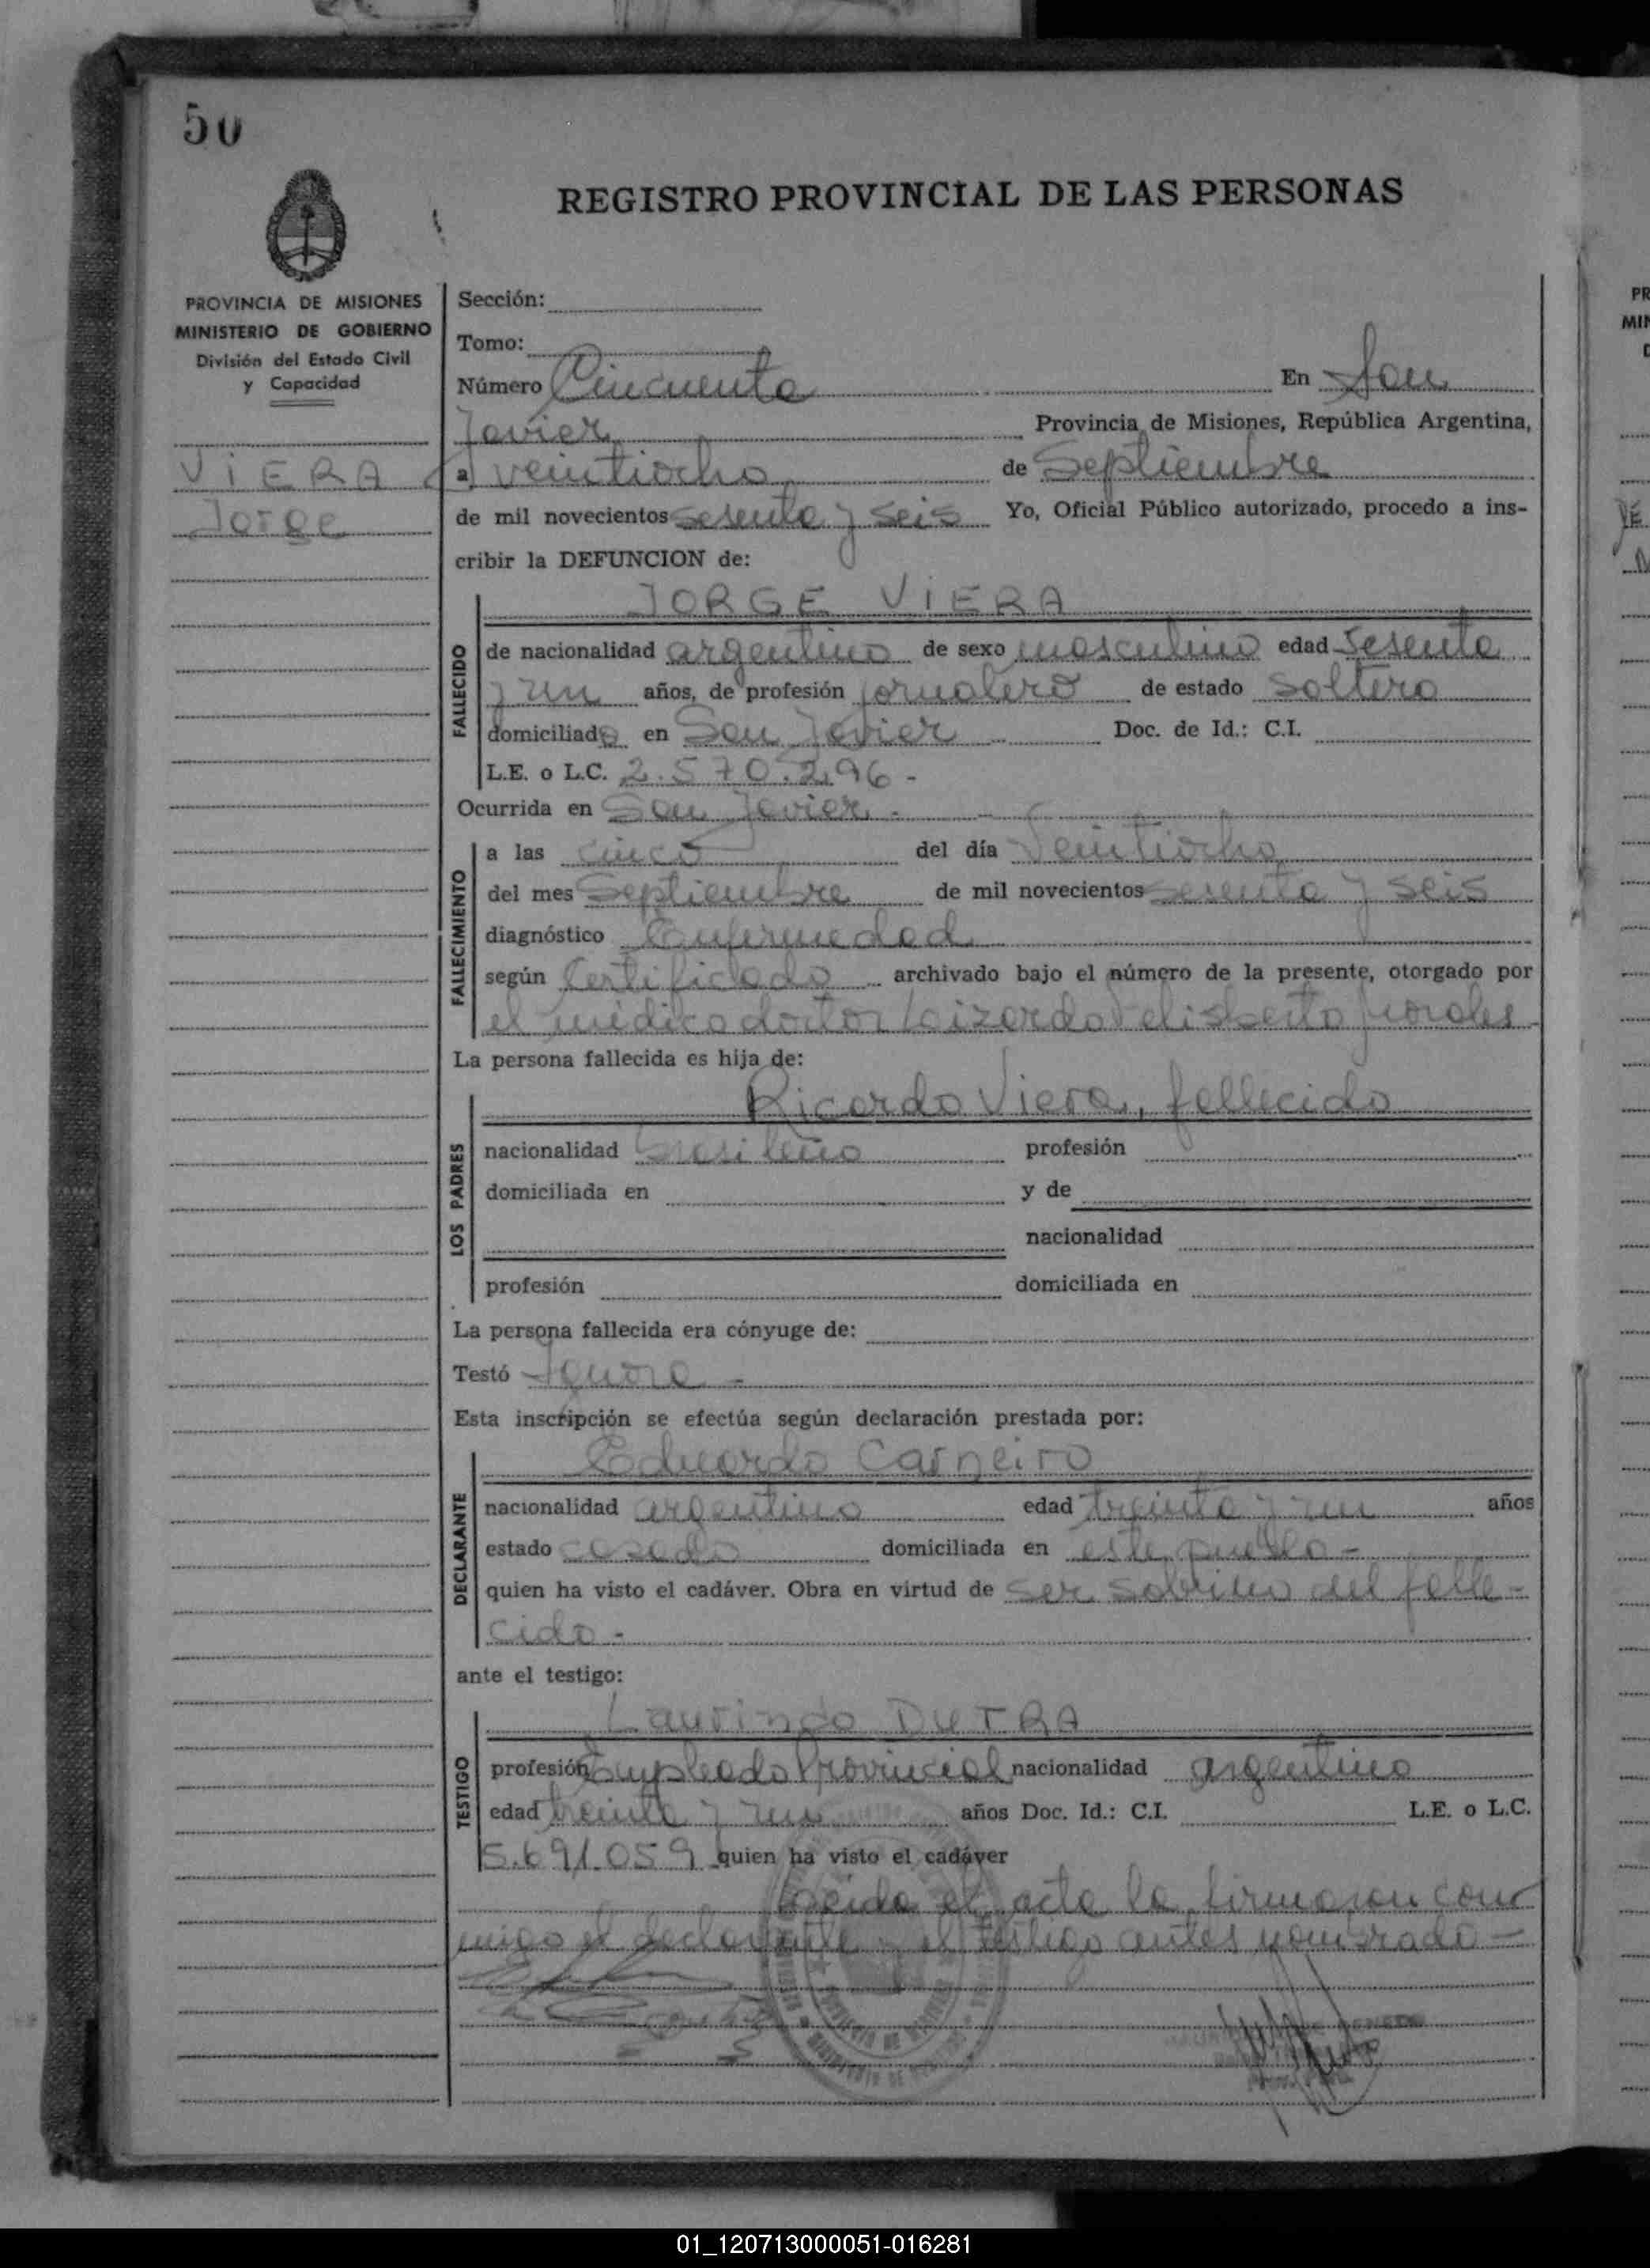 50
REGISTRO PROVINCIAL DE LAS PERSONAS
PROVINCIA DE MISIONES
MINISTERIO DE GOBIERNO
División del Estado Civil
y Capacidad
VIERA
Jorge
Sección:
Tomo:
Número Cincuenta En San
Javier Provincia de Misiones, República Argentina,
a veintiocho de Septiembre
de mil novecientos sesenta y seis Yo, Oficial Público autorizado, procedo a ins-
cribir la DEFUNCION de:
JORGE VIERA
FALLECIDO
de nacionalidad argentino de sexo masculino edad sesenta
y un años, de profesión jornalero de estado soltero
domiciliado en San Javier Doc. de Id.: C.I.
L.E. o L.C. 2.570.296-
Ocurrida en San Javier.-
FALLECIMIENTO
a las cinco del día Veintiocho
del mes Septiembre de mil novecientos sesenta y seis
diagnóstico Enfermedad
según Certificado archivado bajo el número de la presente, otorgado por
el médico doctor
La persona fallecida es hija de:
LOS PADRES
Ricardo Viera, fallecido
nacionalidad brasileño profesión
domiciliada en y de
nacionalidad
profesión domiciliada en
La persona fallecida era cónyuge de:
Testó Ignora -
Esta inscripción se efectúa según declaración prestada por:
DECLARANTE
Eduardo Carneiro
nacionalidad argentino edad treinta y un años
estado casado domiciliada en este pueblo-
quien ha visto el cadáver. Obra en virtud de ser sobrino del falle-
cido-
ante el testigo:
TESTIGO
Laurindo DUTRA
profesión Empleado Provincial nacionalidad argentino
edad treinta y un años Doc. Id.: C.I. L.E. o L.C.
5.691.059 quien ha visto el cadáver
Leída el acta la firmaron con-
migo el declarante y el testigo antes nombrado-
01_120713000051-016281